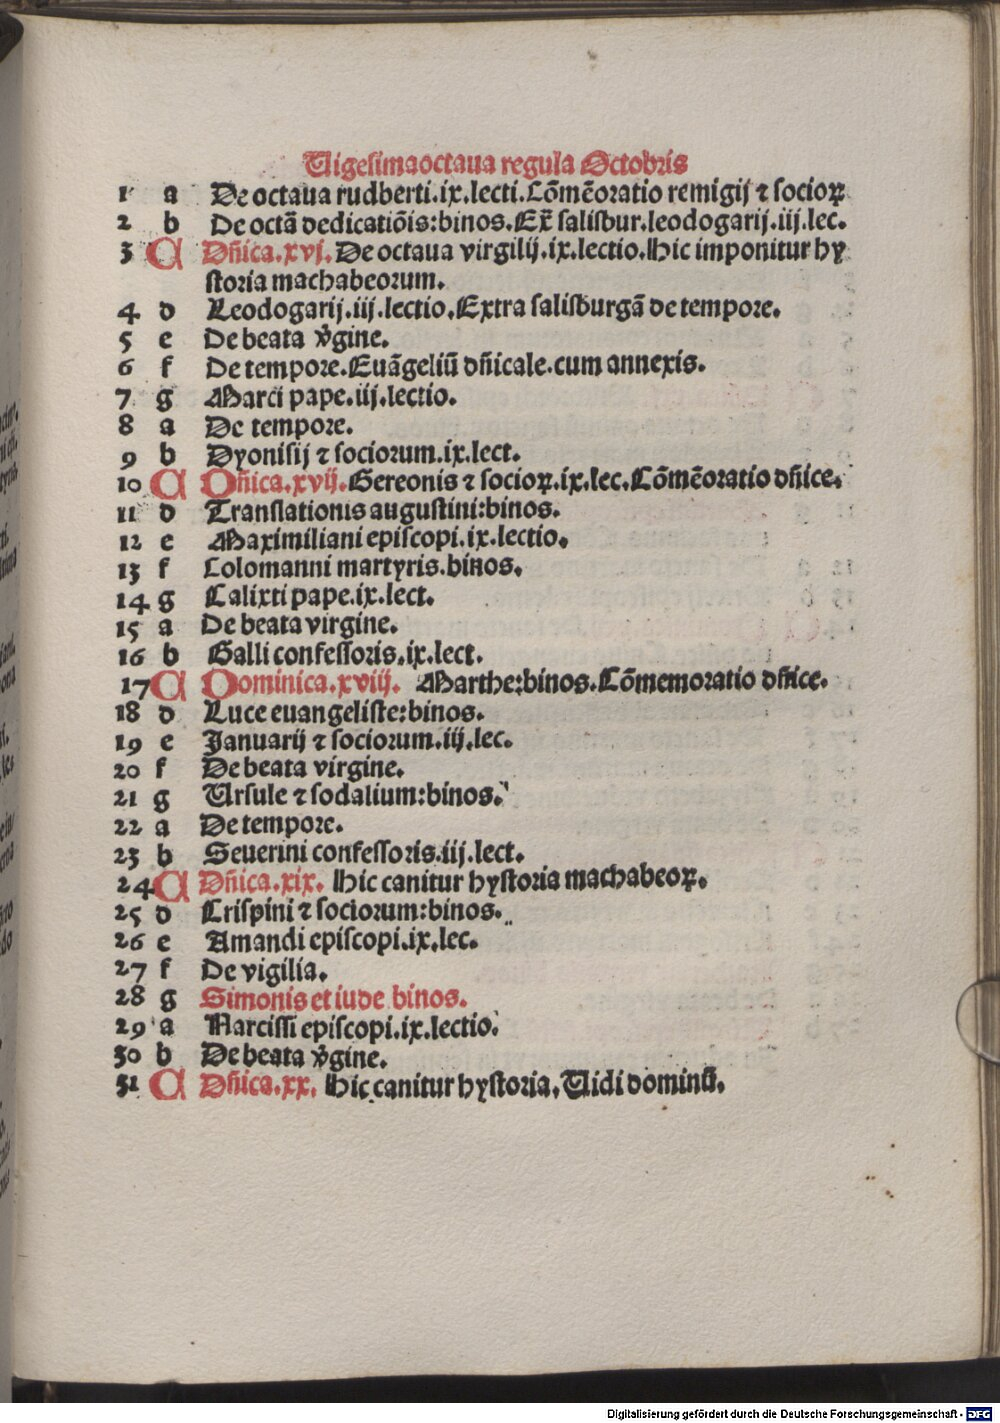 Uigesimaoctaua regula Octobris
1 a De octaua rudberti.ix.lecti.Cōmēoratio remigij ⁊ socioꝝ
2 b De octā dedicatiōis:binos.Ex̄ salisbur.leodogarij.iij.lec.
3 C Dn̄ica.xvj.De octaua virgilij.ix.lectio.Hic imponitur hy
storia machabeorum.
4 d Leodogarij.iij.lectio.Extra salisburgā de tempore.
5 e De beata v̄gine.
6 f De tempore.Euāgeliū dn̄icale.cum annexis.
7 g Marci pape.iij.lectio.
8 a De tempore.
9 b Dyonisij ⁊ sociorum.ix.lect.
10 C Dn̄ica.xvij.Gereonis ⁊ socioꝝ.ix.lec.Cōmēoratio dn̄ice.
11 d Translationis augustini:binos.
12 e Maximiliani episcopi.ix.lectio.
13 f Colomanni martyris.binos.
14 g Calixti pape.ix.lect.
15 a De beata virgine.
16 b Galli confessoris.ix.lect.
17 C Dominica.xviij. Marthe:binos.Cōmemoratio dn̄ice.
18 d Luce euangeliste:binos.
19 e Januarij ⁊ sociorum.iij.lec.
20 f De beata virgine.
21 g Ursule ⁊ sodalium:binos.
22 a De tempore.
23 b Seuerini confessoris.iij.lect.
24 C Dn̄ica.xix. Hic canitur hystoria machabeoꝝ.
25 d Crispini ⁊ sociorum:binos.
26 e Amandi episcopi.ix.lec.
27 f De vigilia.
28 g Simonis et iude binos.
29 a Narcissi episcopi.ix.lectio.
30 b De beata v̄gine.
31 C Dn̄ica.xx. Hic canitur hystoria.Uidi dominū.
Digitalisierung gefördert durch die Deutsche Forschungsgemeinschaft - DFG